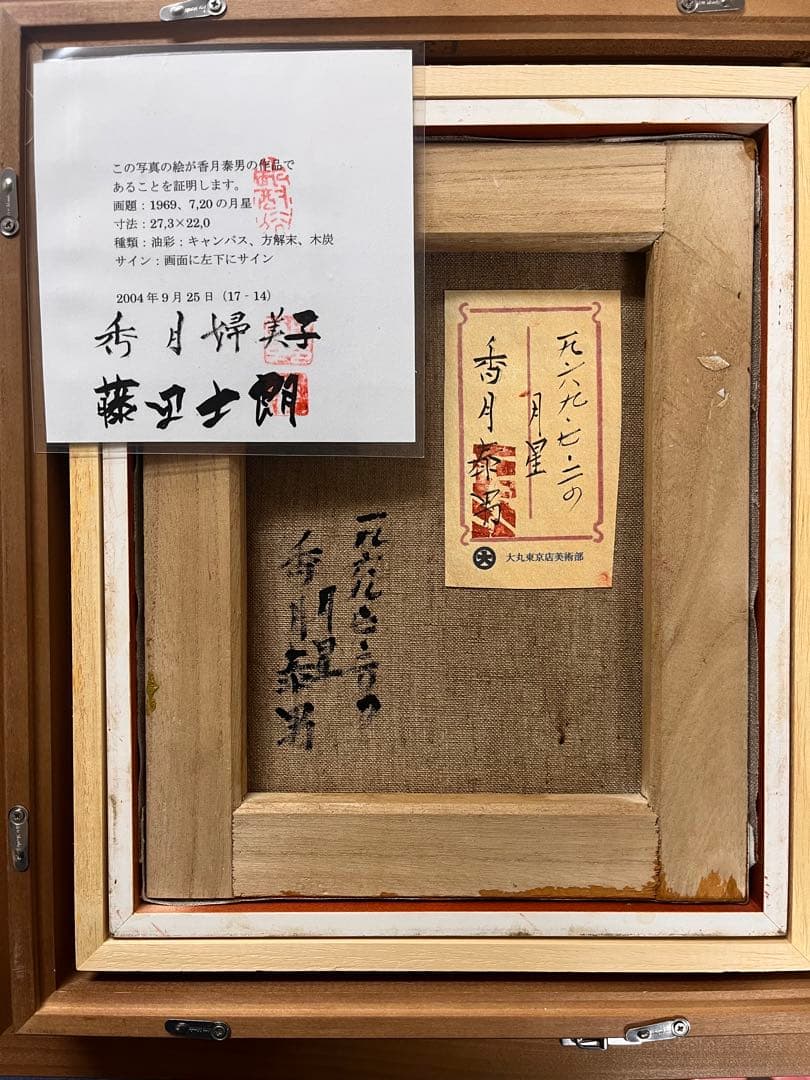 この写真の絵が香月泰男の作品で
あることを証明します。
画題：1969、7,20の月星
寸法：27,3×22,0
種類：油彩：キャンバス、方解末、木炭
サイン：画面に左下にサイン
2004年9月25日（17‐14）
香月婦美子
藤田士朗
一九六九・七・二の
月星
香月泰男
大丸東京店美術部
一九六九・七・二〇の
月星
香月泰男